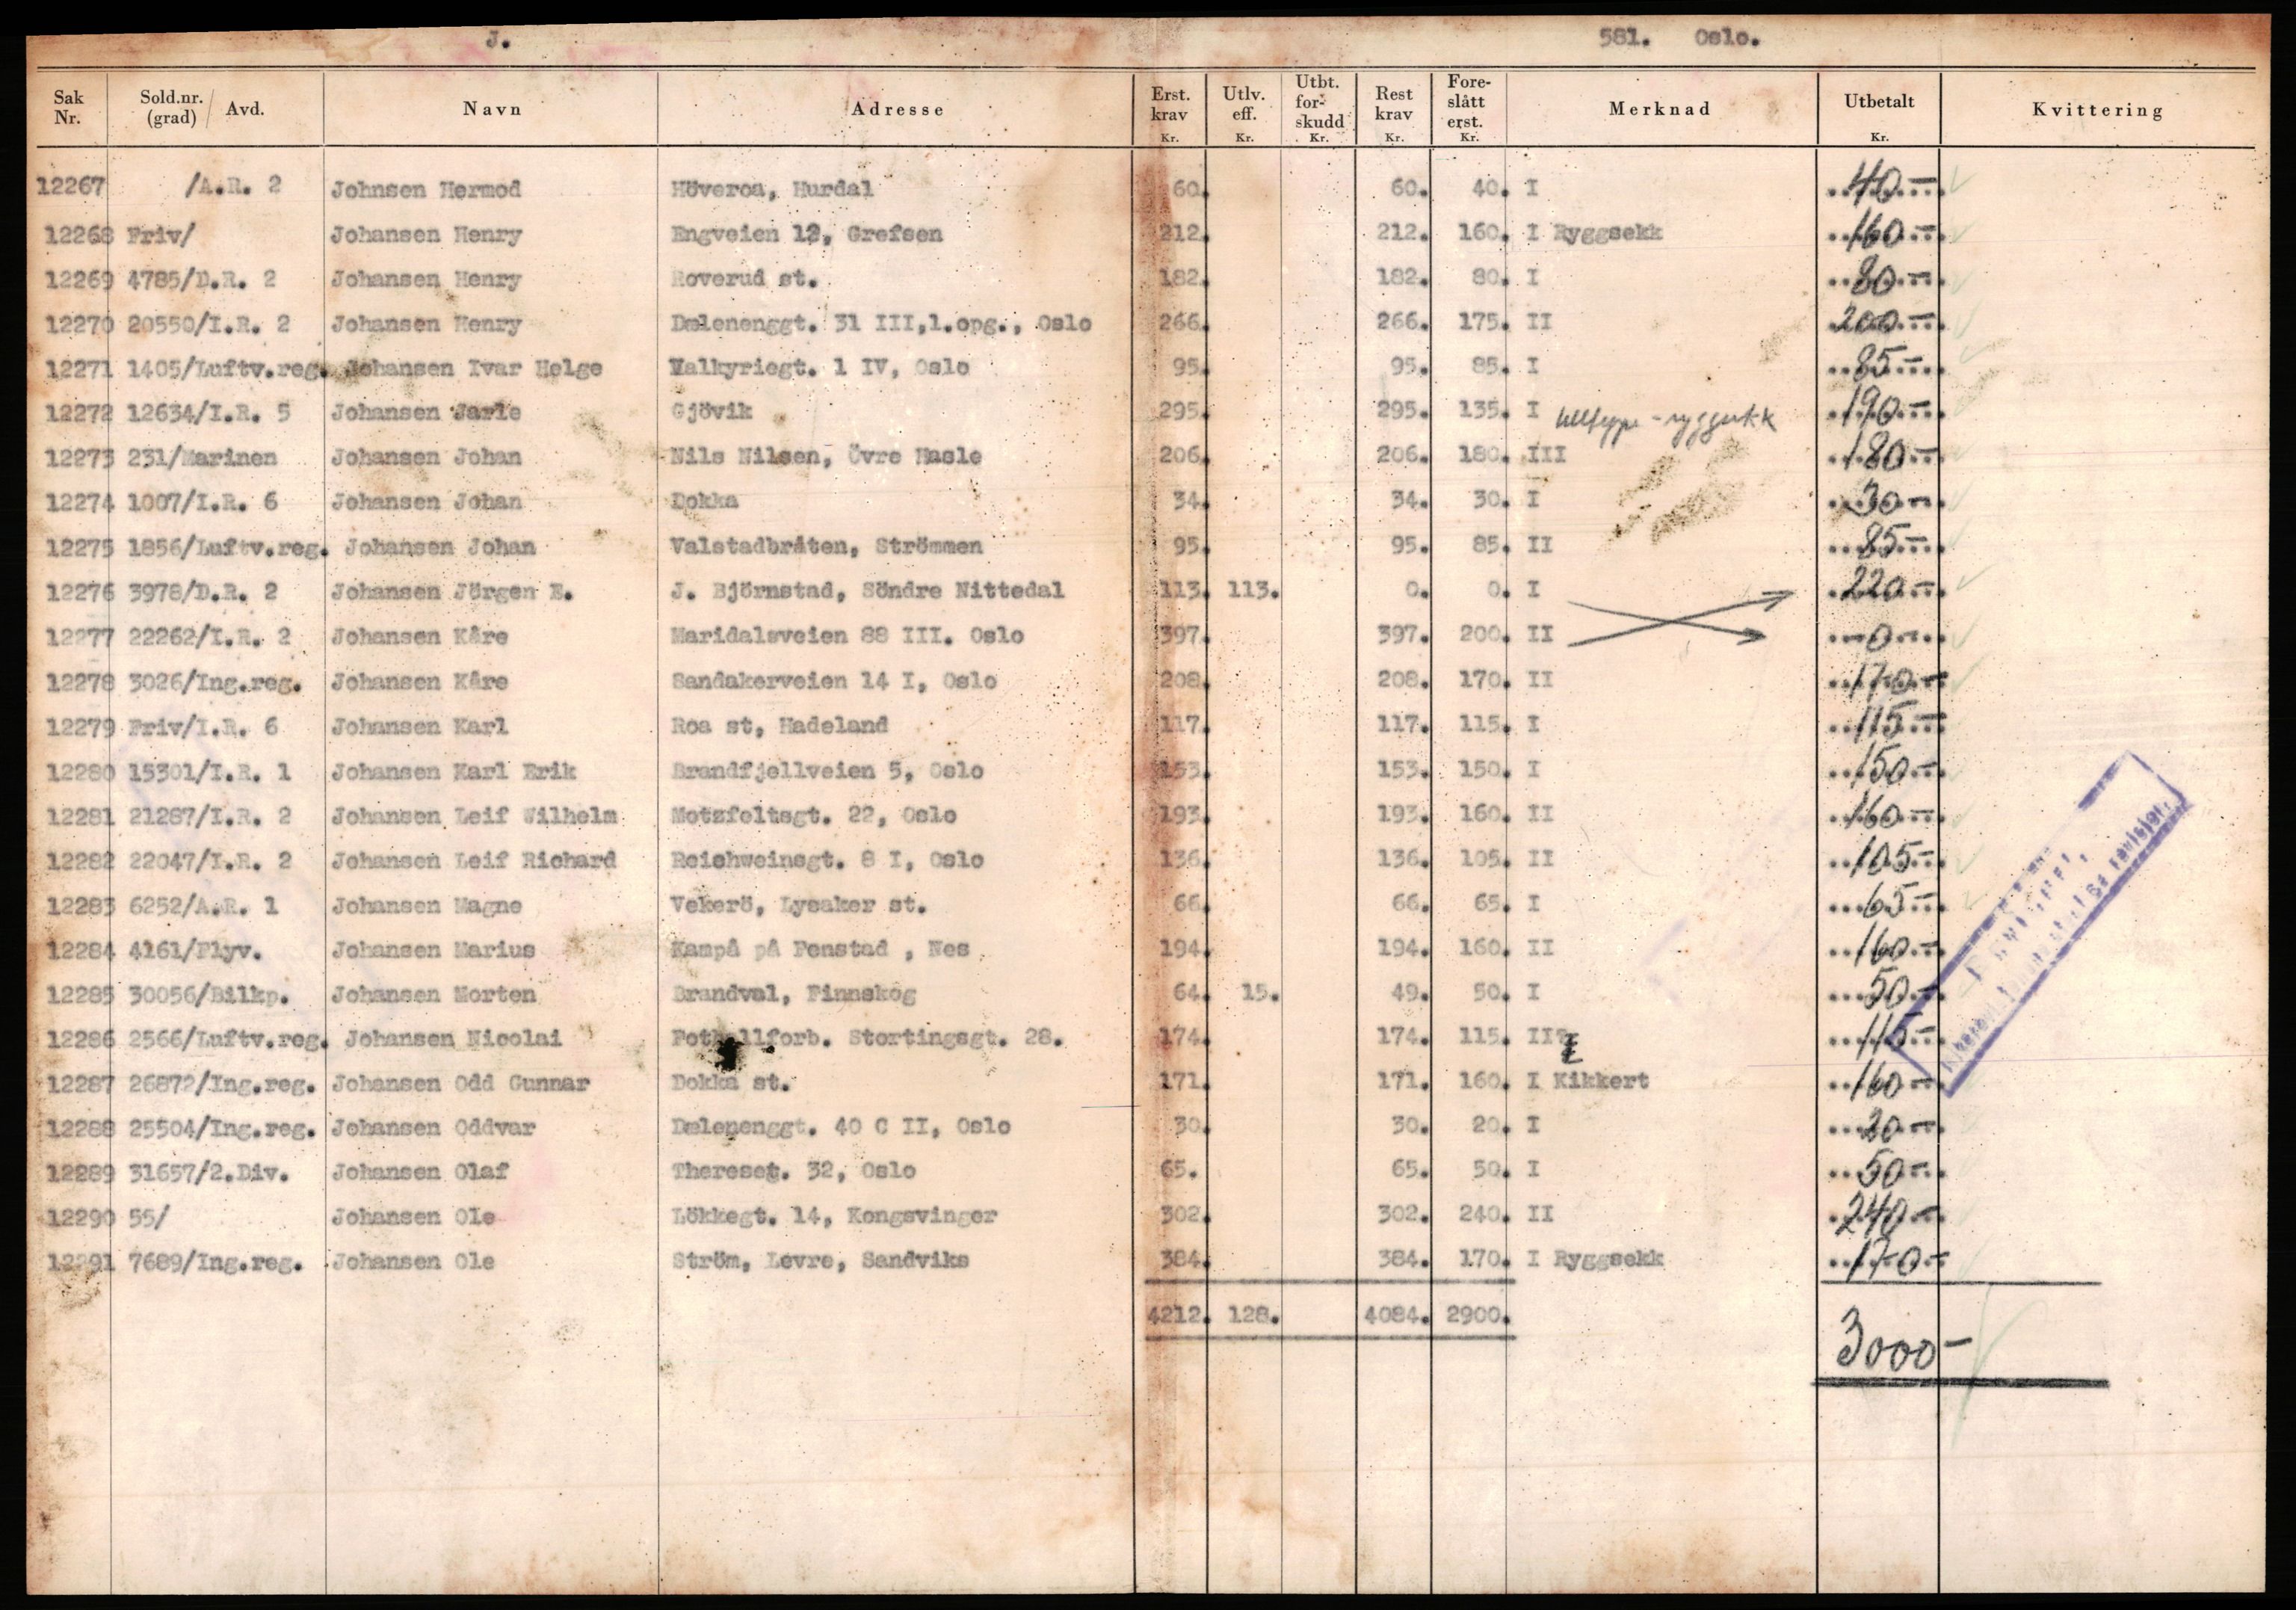 J. 581. Oslo.
Sak Nr. Sold.nr. (grad) / Avd. Navn Adresse Erst. krav Kr. Utlv. eff. Kr. Utbt. for- skudd Kr. Rest krav Kr. Fore- slått erst. Kr. Merknad Utbetalt Kr. Kvittering
12267 /A.R. 2 Johnsen Hermod Höveroa, Hurdal 60. 60. 40. I 40.-
12268 Friv/ Johansen Henry Engveien 12, Grefsen 212. 212. 160. I Ryggsekk 160.-
12269 4785/D.R. 2 Johansen Henry Roverud st. 182. 182. 80. I 80.-
12270 20550/I.R. 2 Johansen Henry Dælenenggt. 31 III,1.opg., Oslo 266. 266. 175. II 200.-
12271 1405/Luftv.reg. Johansen Ivar Helge Valkyriegt. 1 IV, Oslo 95. 95. 85. I 85.-
12272 12634/I.R. 5 Johansen Jarle Gjövik 295. 295. 135. I 190.-
12273 231/Marinen Johansen Johan Nils Nilsen, Övre Hasle 206. 206. 180. III 180.-
12274 1007/I.R. 6 Johansen Johan Dokka 34. 34. 30. I 30.-
12275 1856/Luftv.reg. Johansen Johan Valstadbråten, Strömmen 95. 95. 85. II 85.-
12276 3978/D.R. 2 Johansen Jörgen E. J. Björnstad, Söndre Nittedal 113. 113. 0. 0. I 220.-
12277 22262/I.R. 2 Johansen Kåre Maridalsveien 88 III. Oslo 397. 397. 200. II -0-
12278 3026/Ing.reg. Johansen Kåre Sandakerveien 14 I, Oslo 208. 208. 170. II 170.-
12279 Friv/I.R. 6 Johansen Karl Roa st, Hadeland 117. 117. 115. I 115.-
12280 15301/I.R. 1 Johansen Karl Erik Brandfjellveien 5, Oslo 153. 153. 150. I 150.-
12281 21287/I.R. 2 Johansen Leif Wilhelm Motzfeltsgt. 22, Oslo 193. 193. 160. II 160.-
12282 22047/I.R. 2 Johansen Leif Richard Reichweinsgt. 8 I, Oslo 136. 136. 105. II 105.-
12283 6252/A.R. 1 Johansen Magne Vekerö, Lysaker st. 66. 66. 65. I 65.-
12284 4161/Flyv. Johansen Marius Kampå på Fenstad , Nes 194. 194. 160. II 160.-
12285 30056/Bilkp. Johansen Morten Brandval, Finnskog 64. 15. 49. 50. I 50.-
12286 2566/Luftv.reg. Johansen Nicolai Fotballforb. Stortingsgt. 28. 174. 174. 115. II? I 115.-
12287 26872/Ing.reg. Johansen Odd Gunnar Dokka st. 171. 171. 160. I Kikkert 160.-
12288 25504/Ing.reg. Johansen Oddvar Dælenenggt. 40 C II, Oslo 30. 30. 20. I 20.-
12289 31657/2.Div. Johansen Olaf Thereset. 32, Oslo 65. 65. 50. I 50.-
12290 55/ Johansen Ole Lökkegt. 14, Kongsvinger 302. 302. 240. II 240.-
12291 7689/Ing.reg. Johansen Ole Ström, Levre, Sandviks 384. 384. 170. I Ryggsekk 170.-
4212. 128. 4084. 2900.
3000-